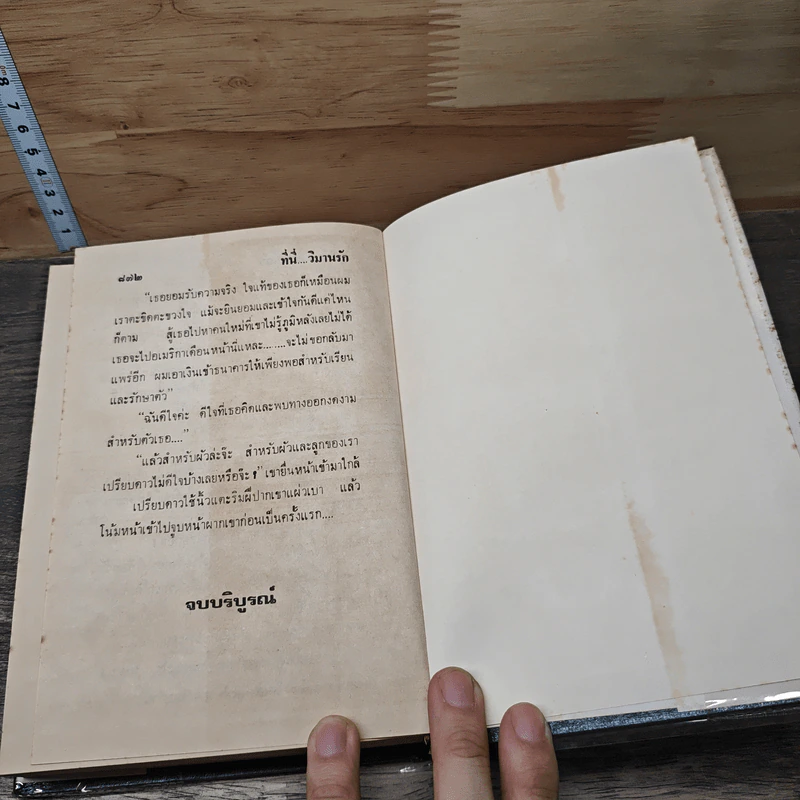 8 7 6 5 4 3 2 1
ที่นี่....วิมานรัก
๘๗๒
“เธอยอมรับความจริง ใจแท้ของเธอก็เหมือนผม
เราตะขิดตะขวงใจ แม้จะยินยอมและเข้าใจกันดีแค่ไหน
ก็ตาม สู้เธอไปหาคนใหม่ที่เขาไม่รู้ภูมิหลังเลยไม่ได้
เธอจะไปอเมริกาเดือนหน้านี่แหละ.......จะไม่ขอกลับมา
แพร่อีก ผมเอาเงินเข้าธนาคารให้เพียงพอสำหรับเรียน
และรักษาตัว”
“ฉันดีใจค่ะ ดีใจที่เธอคิดและพบทางออกงดงาม
สำหรับตัวเธอ....”
“แล้วสำหรับผัวล่ะจ๊ะ สำหรับผัวและลูกของเรา
เปรียบดาวไม่ดีใจบ้างเลยหรือจ๊ะ !” เขายื่นหน้าเข้ามาใกล้
เปรียบดาวใช้นิ้วแตะริมฝีปากเขาแผ่วเบา แล้ว
โน้มหน้าเข้าไปจูบหน้าผากเขาก่อนเป็นครั้งแรก....
จบบริบูรณ์